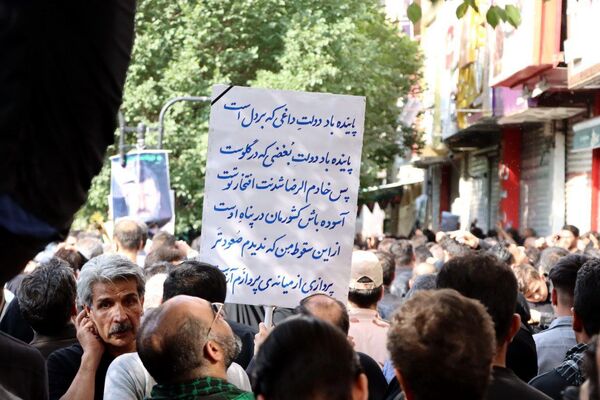 پاینده باد دولتِ داغی که بر دل است
پاینده باد دولت بغضی که در گلوست
پس خادم الرضا شدنت افتخار توست
آسوده باش کشورمان در پناه اوست
از این سقوط من که ندیدم صعودتر
پردازی از میانه‌ی پروازم آ